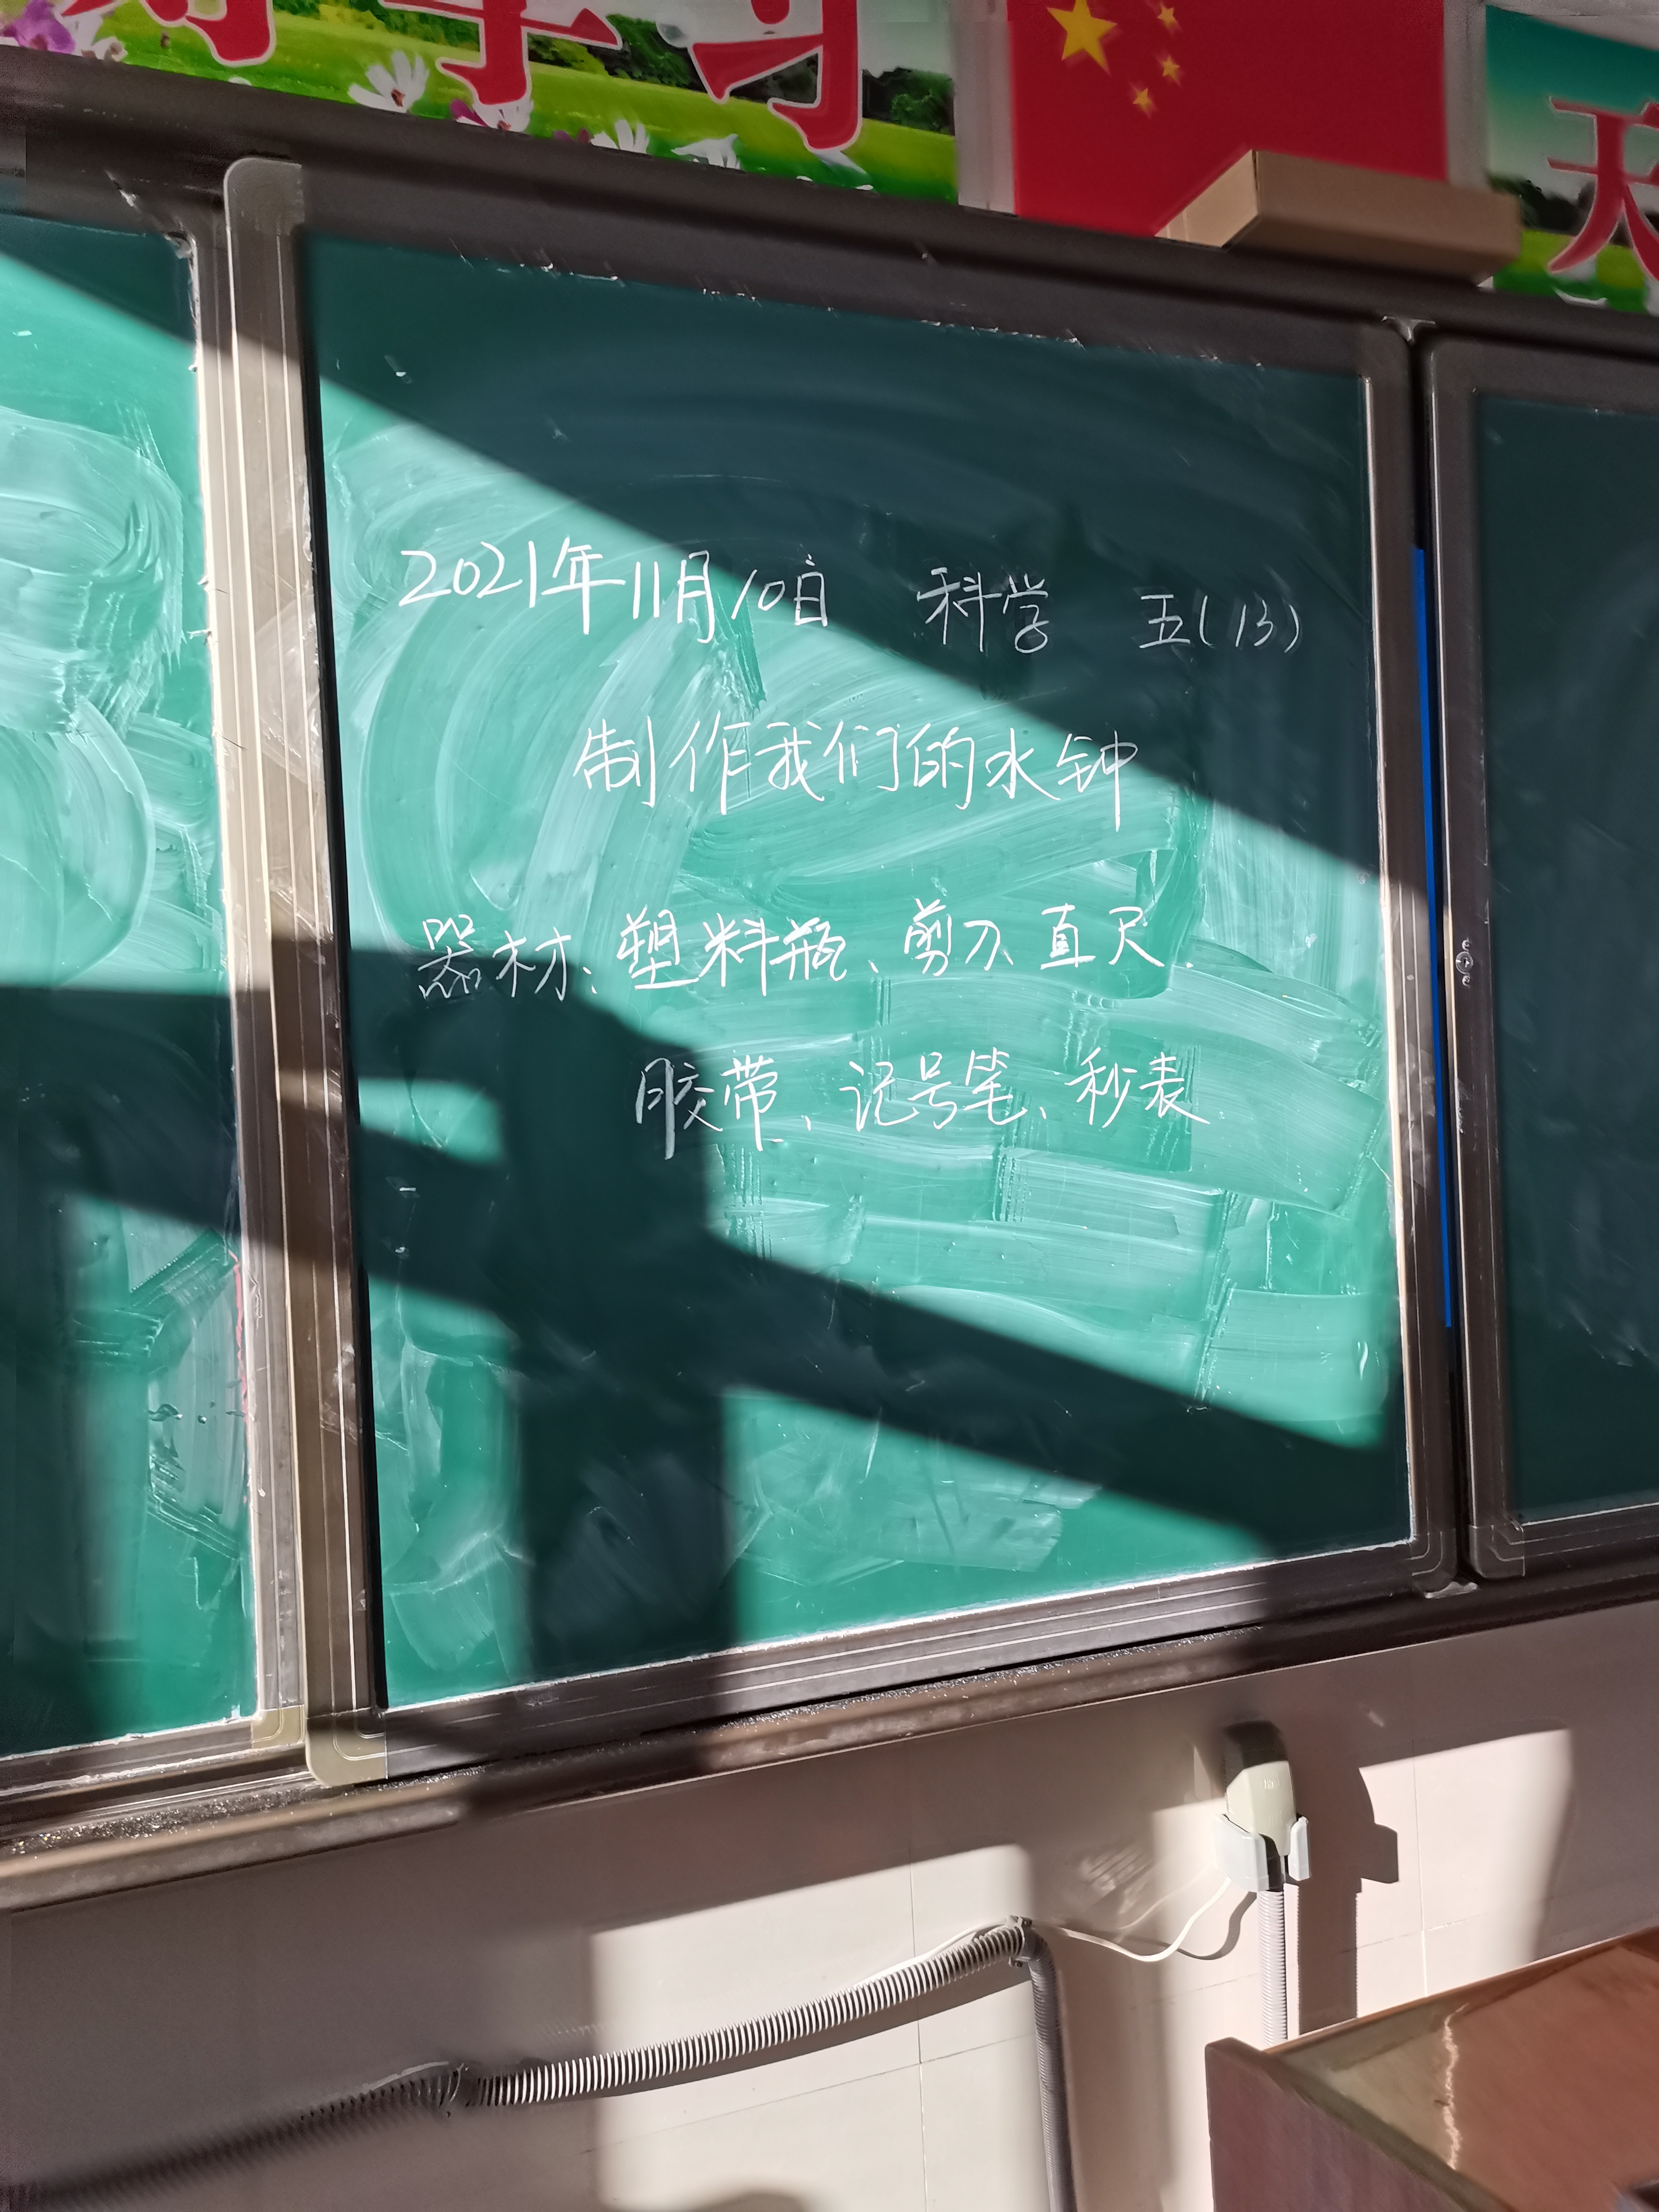 学习
天
2021年11月10日 科学 五(13)
制作我们的水钟
器材:塑料瓶、剪刀、直尺、
胶带、记号笔、秒表